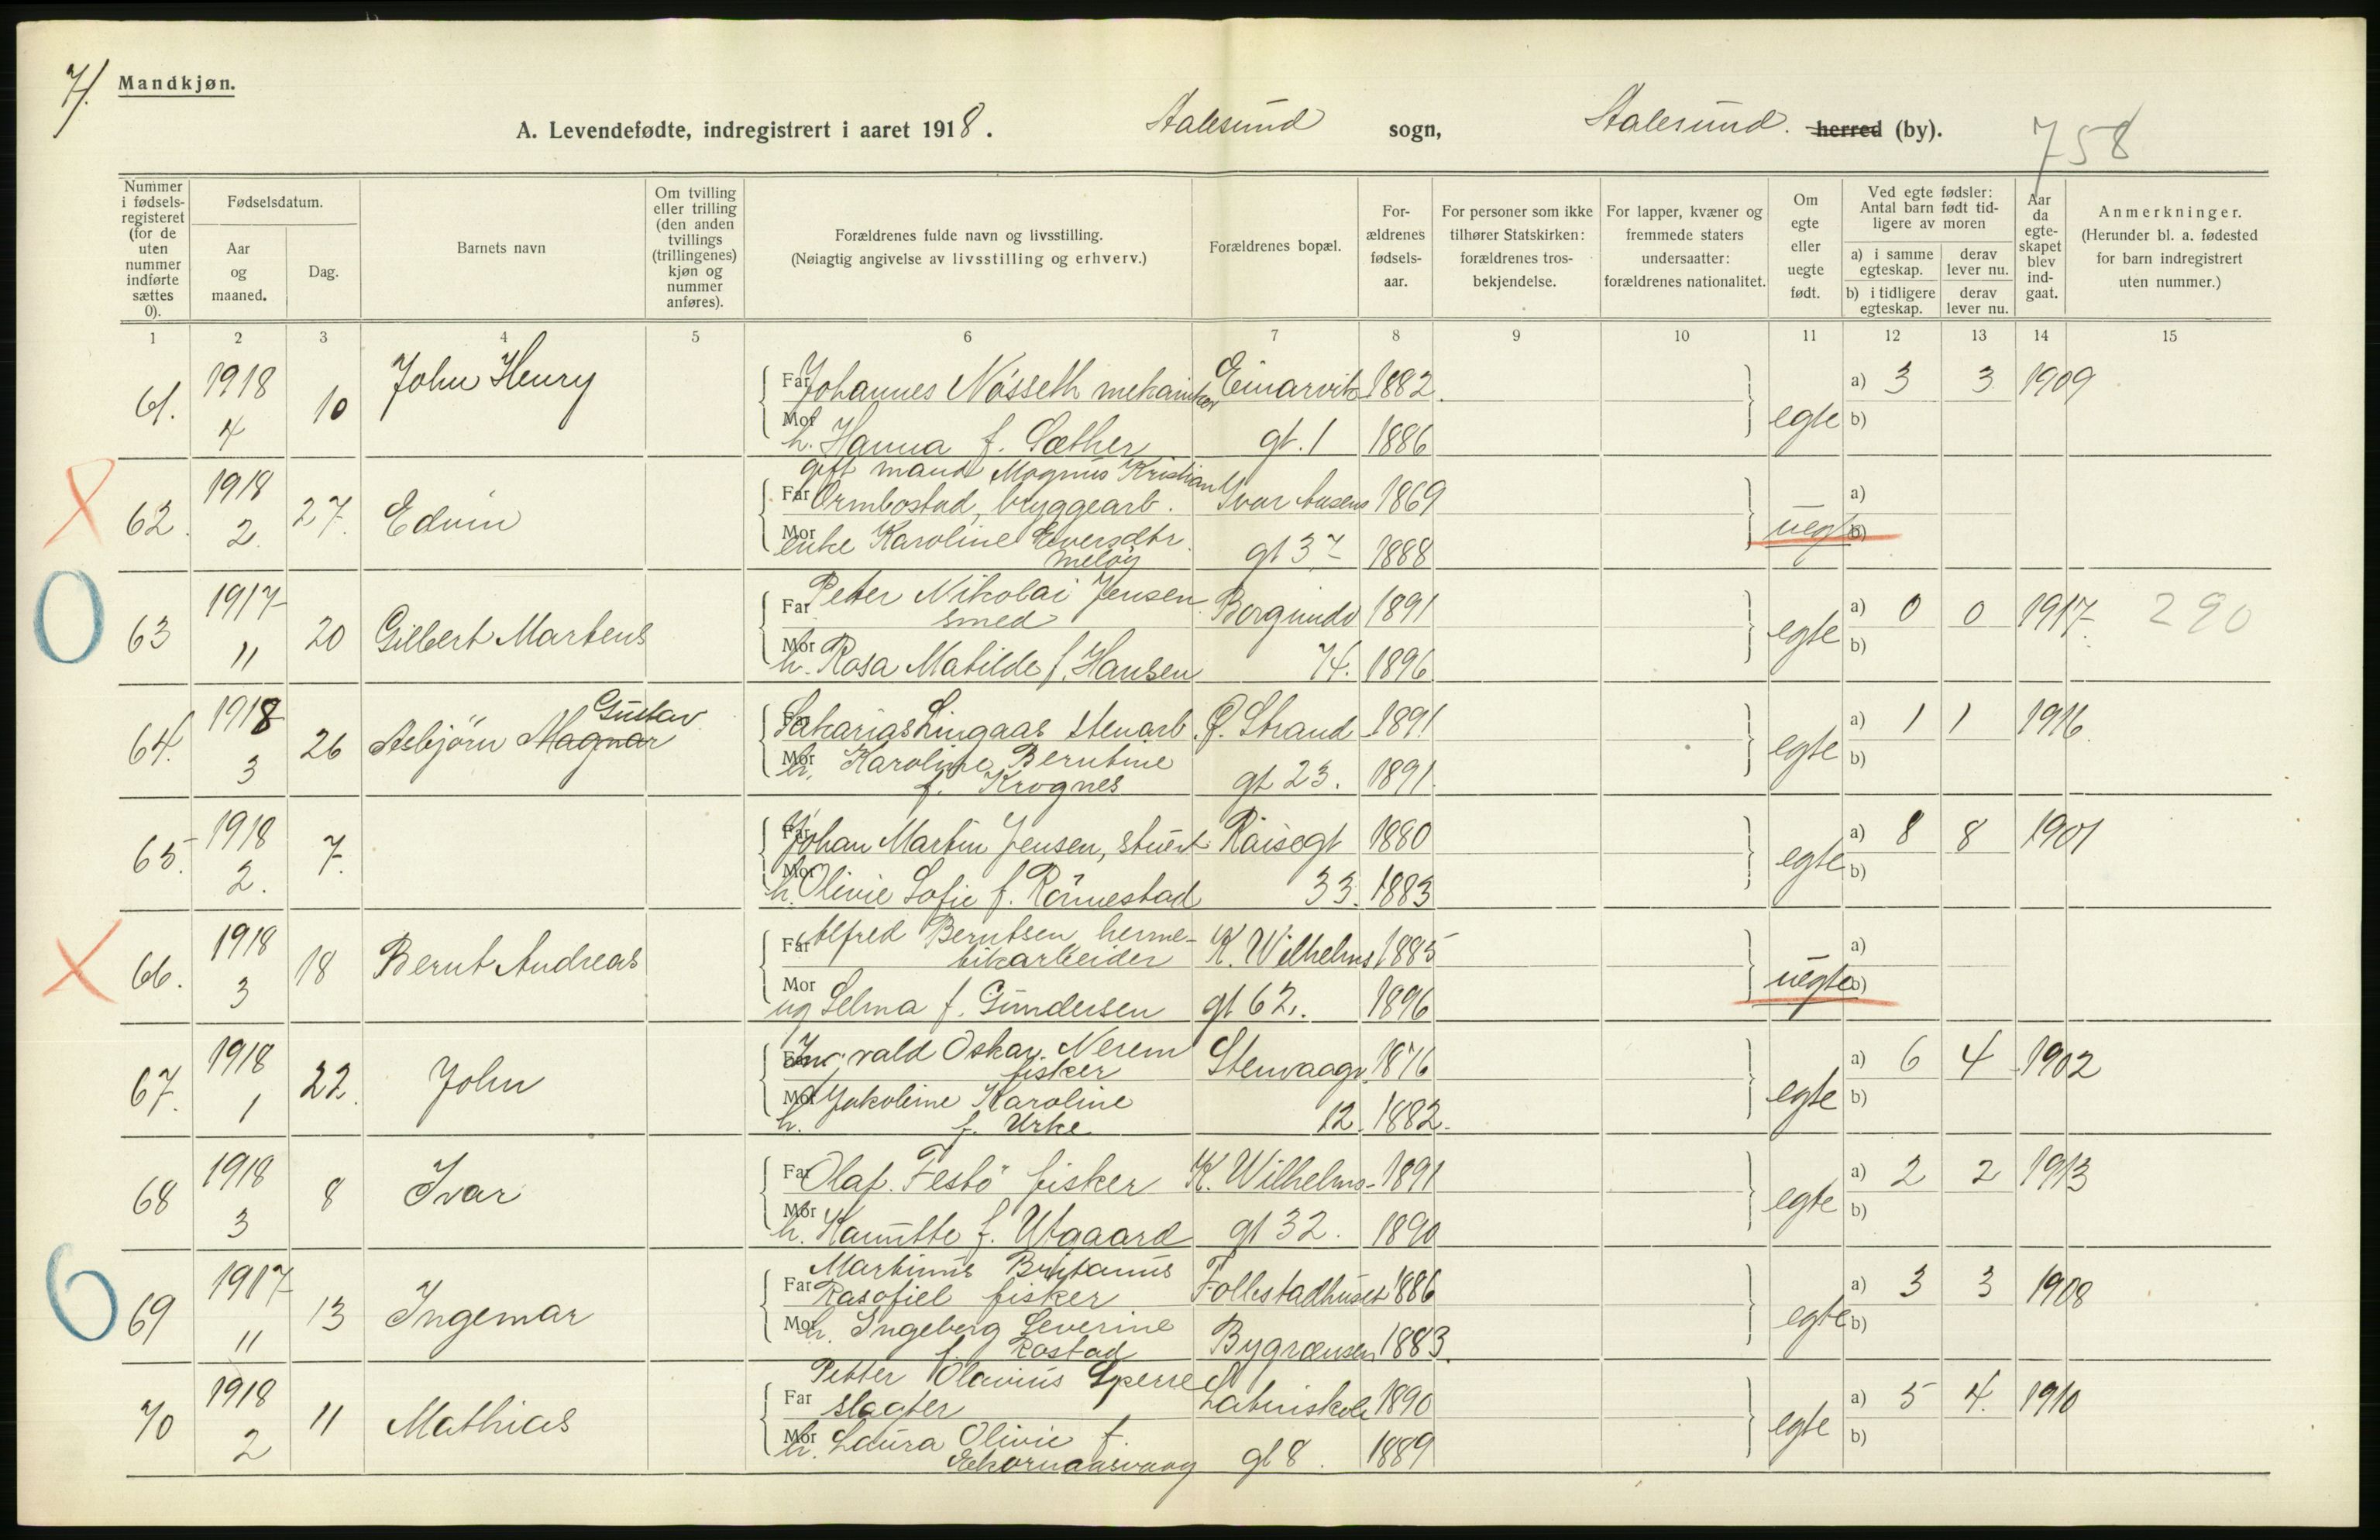 7/.
Mandkjøn.
A. Levendefødte, indregistrert i aaret 1918. Aalesund sogn, Aalesund. herred (by).
758
Nummer i fødsels-registeret (for de uten nummer indførte sættes 0).
Fødselsdatum.
Aar og maaned.
Dag.
Barnets navn
Om tvilling eller trilling (den anden tvillings (trillingenes) kjøn og nummer anføres).
Forældrenes fulde navn og livsstilling.
(Nøiagtig angivelse av livsstilling og erhverv.)
Forældrenes bopæl.
For-ældrenes fødsels-aar.
For personer som ikke tilhører Statskirken: forældrenes tros-bekjendelse.
For lapper, kvæner og fremmede staters undersaatter: forældrenes nationalitet.
Om egte eller uegte født.
Ved egte fødsler: Antal barn født tid-ligere av moren
a) i samme egteskap.
derav lever nu.
b) i tidligere egteskap.
derav lever nu.
Aar da egte-skapet blev ind-gaat.
Anmerkninger.
(Herunder bl. a. fødested for barn indregistrert uten nummer.)
1 2 3 4 5 6 7 8 9 10 11 12 13 14 15
61. 1918 4 10 John Henry
Far Johannes Nösseth mekaniker Einarvik 1882
Mor h. Hanna f. Sæther gt. 1 1886
egte a) 3 3 1909
b)
62. 1918 2. 27. Edvin
gift mand Magnus Kristian
Far Ormbostad, bryggearb. Ivar Aasens 1869
Mor enke Karoline Eversdtr. Meløy gt 37 1888
uegte a)
b)
63 1917 11 20 Gilbert Martens
Far Peter Nikolai Jensen smed Borgundv 1891
Mor h. Rosa Matilde f. Hansen 74. 1896
egte a) 0 0 1917. 290
b)
64. 1918 3 26 Asbjörn Magnar Gustav
Far Sakarias Lingaas stenarb. Ø. Strand 1891
Mor h. Karoline Berntine f. Krognes gt 23. 1891.
egte a) 1 1 1916.
b)
65. 1918 2. 7.
Far Johan Martin Jensen, stuert Raisegt 1880
Mor h. Olivie Sofie f. Rönnestad 33. 1883
egte a) 8 8 1901
b)
66. 1918 3 18 Bernt Andreas
Far Alfred Berntsen herme-tikarbeider K. Wilhelms 1885
Mor ug Selma f. Gundersen gt 62. 1896
uegte a)
b)
67. 1918 1 22. John
Far Ingvald Oskar Nerem fisker Stenvaagv. 1876
Mor h. Jakobine Karoline f. Urke 12. 1882.
egte a) 6 4 1902
b)
68 1918 3 8 Ivar
Far Olaf Festö fisker K. Wilhelms- 1891
Mor h. f. Utgaard gt 32. 1890
egte a) 2 2 1913
b)
69 1917 11 13 Ingemar
Martinus
Far Rasofiel fisker Follestadhuset 1886
Mor h. Ingeborg Severine f. Rostad Bygrænsen 1883.
egte a) 3 3 1908
b)
70 1918 2 11 Mathias
Petter Olavius Sperre
Far slagter Latinskole 1890
Mor h. Laura Olivie f. Ekornaasvaag gt 8. 1889
egte a) 5 4. 1910
b)